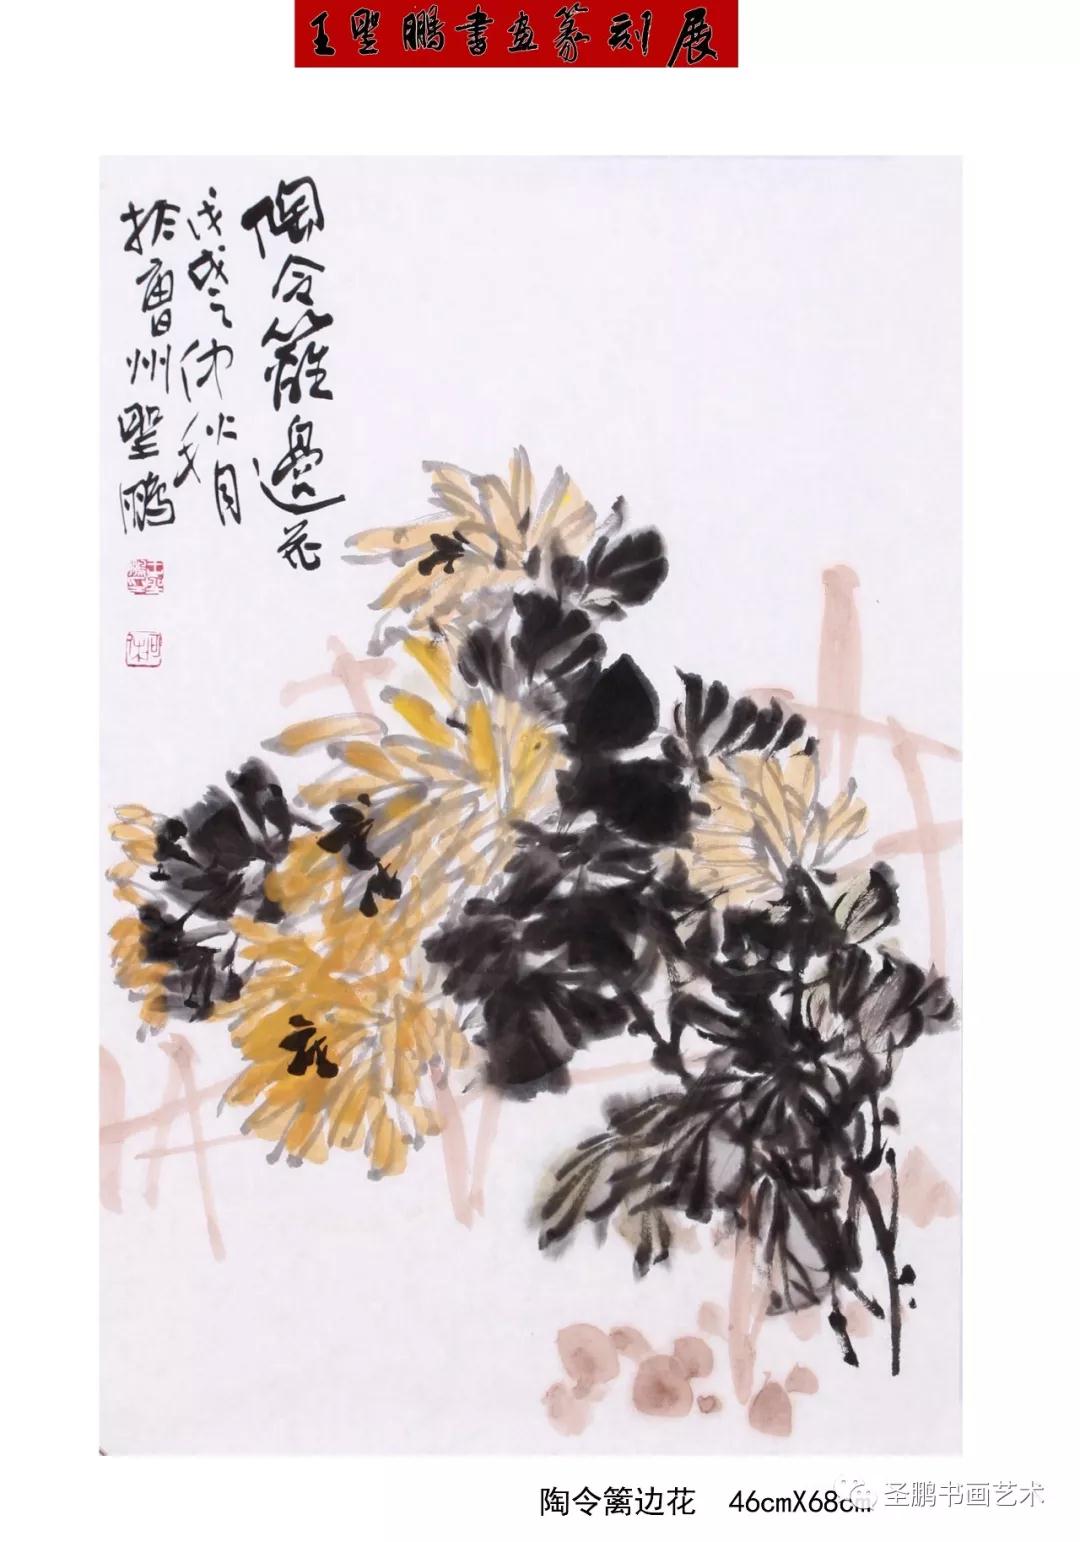 王聖鵬書画篆刻展
陶令籬邊花
戊戌之仲秋月
於曹州聖鵬
陶令篱边花 46cmX68cm
圣鹏书画艺术